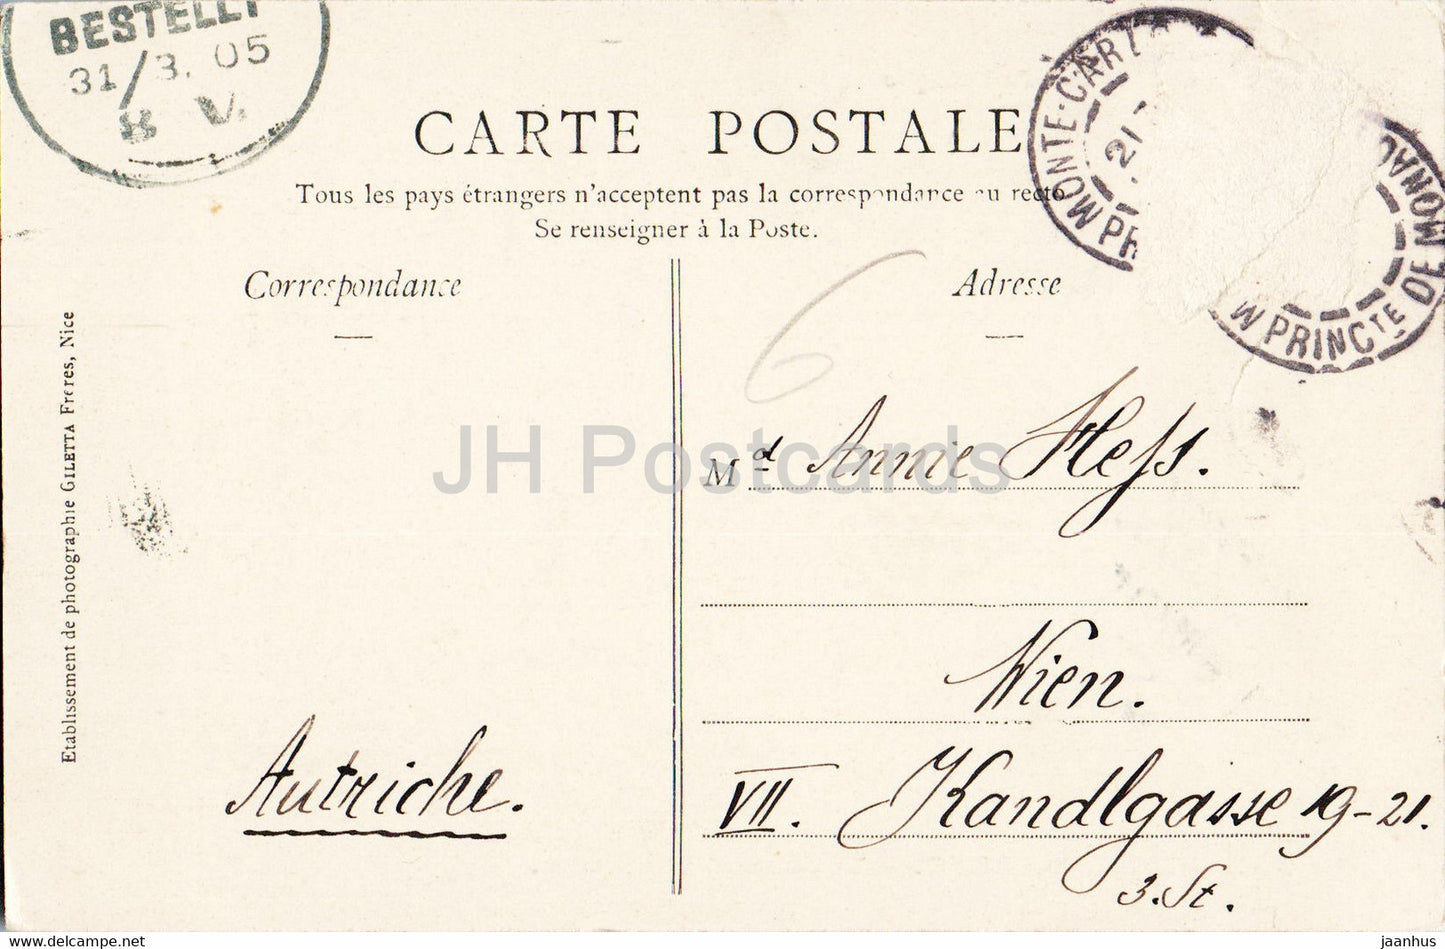 BESTELLT
31/3. 05
8 V.
MONTE-CARLO
21
PRINCTE DE MONACO
CARTE POSTALE
Tous les pays étrangers n'acceptent pas la correspondance au recto
Se renseigner à la Poste.
Correspondance
Adresse
6
Etablissement de photographie GILETTA Frères, Nice
JH Postcards
Md Annie Hess.
Wien.
Autriche.
VII. Kandlgasse 19-21.
3. St.
www.delcampe.net
jaanhus